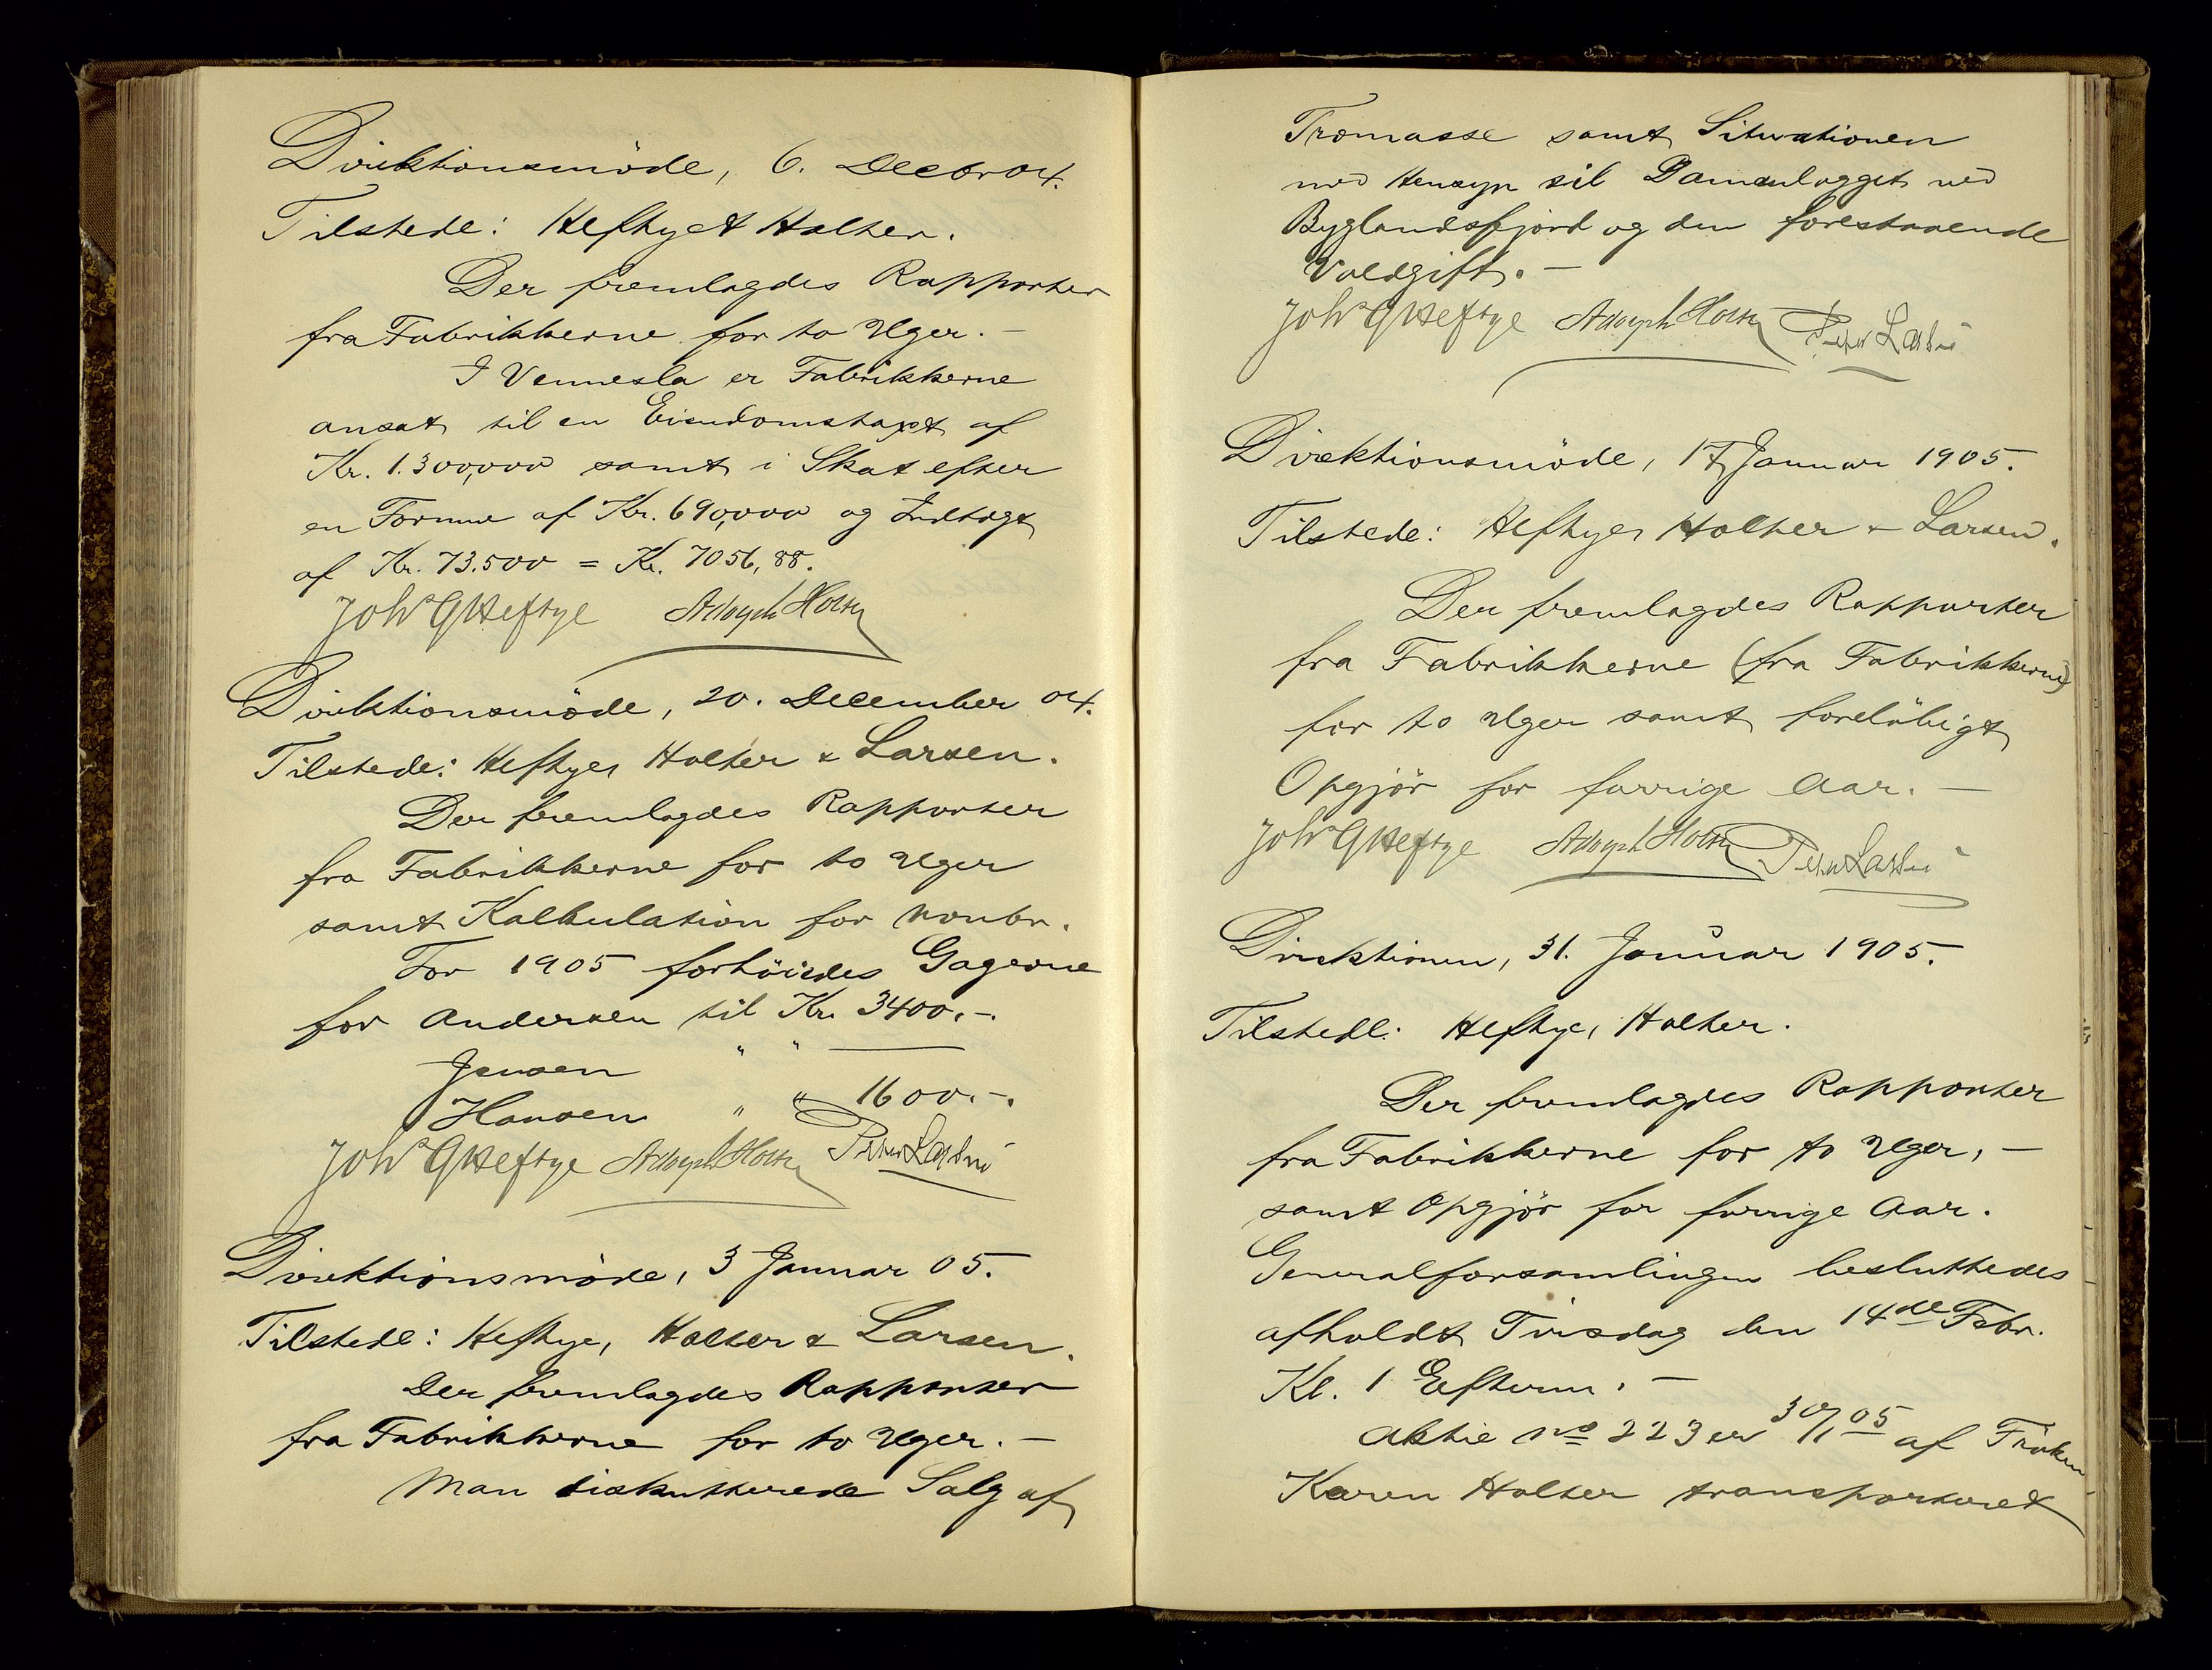 Direktionsmöde, 6. Decbr 04.
Tilstede: Heftye & Holter.
Der fremlagdes Rapporter
fra Fabrikkerne for to Uger. —
I Vennesla er Fabrikkerne
ansat til en Eiendomstaxt af
Kr. 1.300,000 samt i Skat efter
en Formue af Kr. 690,000 og Indtægt
af Kr. 73.500 = Kr. 7056,88.
Johs G Heftye Adolph Holter
Direktionsmöde, 20. December 04.
Tilstede: Heftye, Holter & Larsen.
Der fremlagdes Rapporter
fra Fabrikkerne for to Uger
samt Kalkulation for Novbr.
For 1905 forhöiedes Gagerne
for Andersen til Kr. 3400.-.
Jensen " " —
Hansen " " 1600.-.
Johs G Heftye Adolph Holter Peter Larsen
Direktionsmöde, 3 Januar 05.
Tilstede: Heftye, Holter & Larsen.
Der fremlagdes Rapporter
fra Fabrikkerne for to Uger. —
Man diskutterede Salg af
Træmasse samt Situationen
med Hensyn til Damanlægget ved
Byglandsfjord og den forestaaende
Voldgift. —
Johs G Heftye Adolph Holter Peter Larsen
Direktionsmöde, 17 Januar 1905.
Tilstede: Heftye, Holter & Larsen.
Der fremlagdes Rapporter
fra Fabrikkerne (fra Fabrikkerne)
for to Uger samt forelöbigt
Opgjör for forrige Aar. —
Johs G Heftye Adolph Holter Peter Larsen
Direktionen, 31. Januar 1905.
Tilstede: Heftye, Holter.
Der fremlagdes Rapporter
fra Fabrikkerne for to Uger, —
samt Opgjör for forrige Aar.
Generalforsamlingen besluttedes
afholdt Tirsdag den 14de Febr.
Kl. 1 Efterm. —
Aktie No 223 er 30/1 05 af Fröken
Karen Holter transporteret